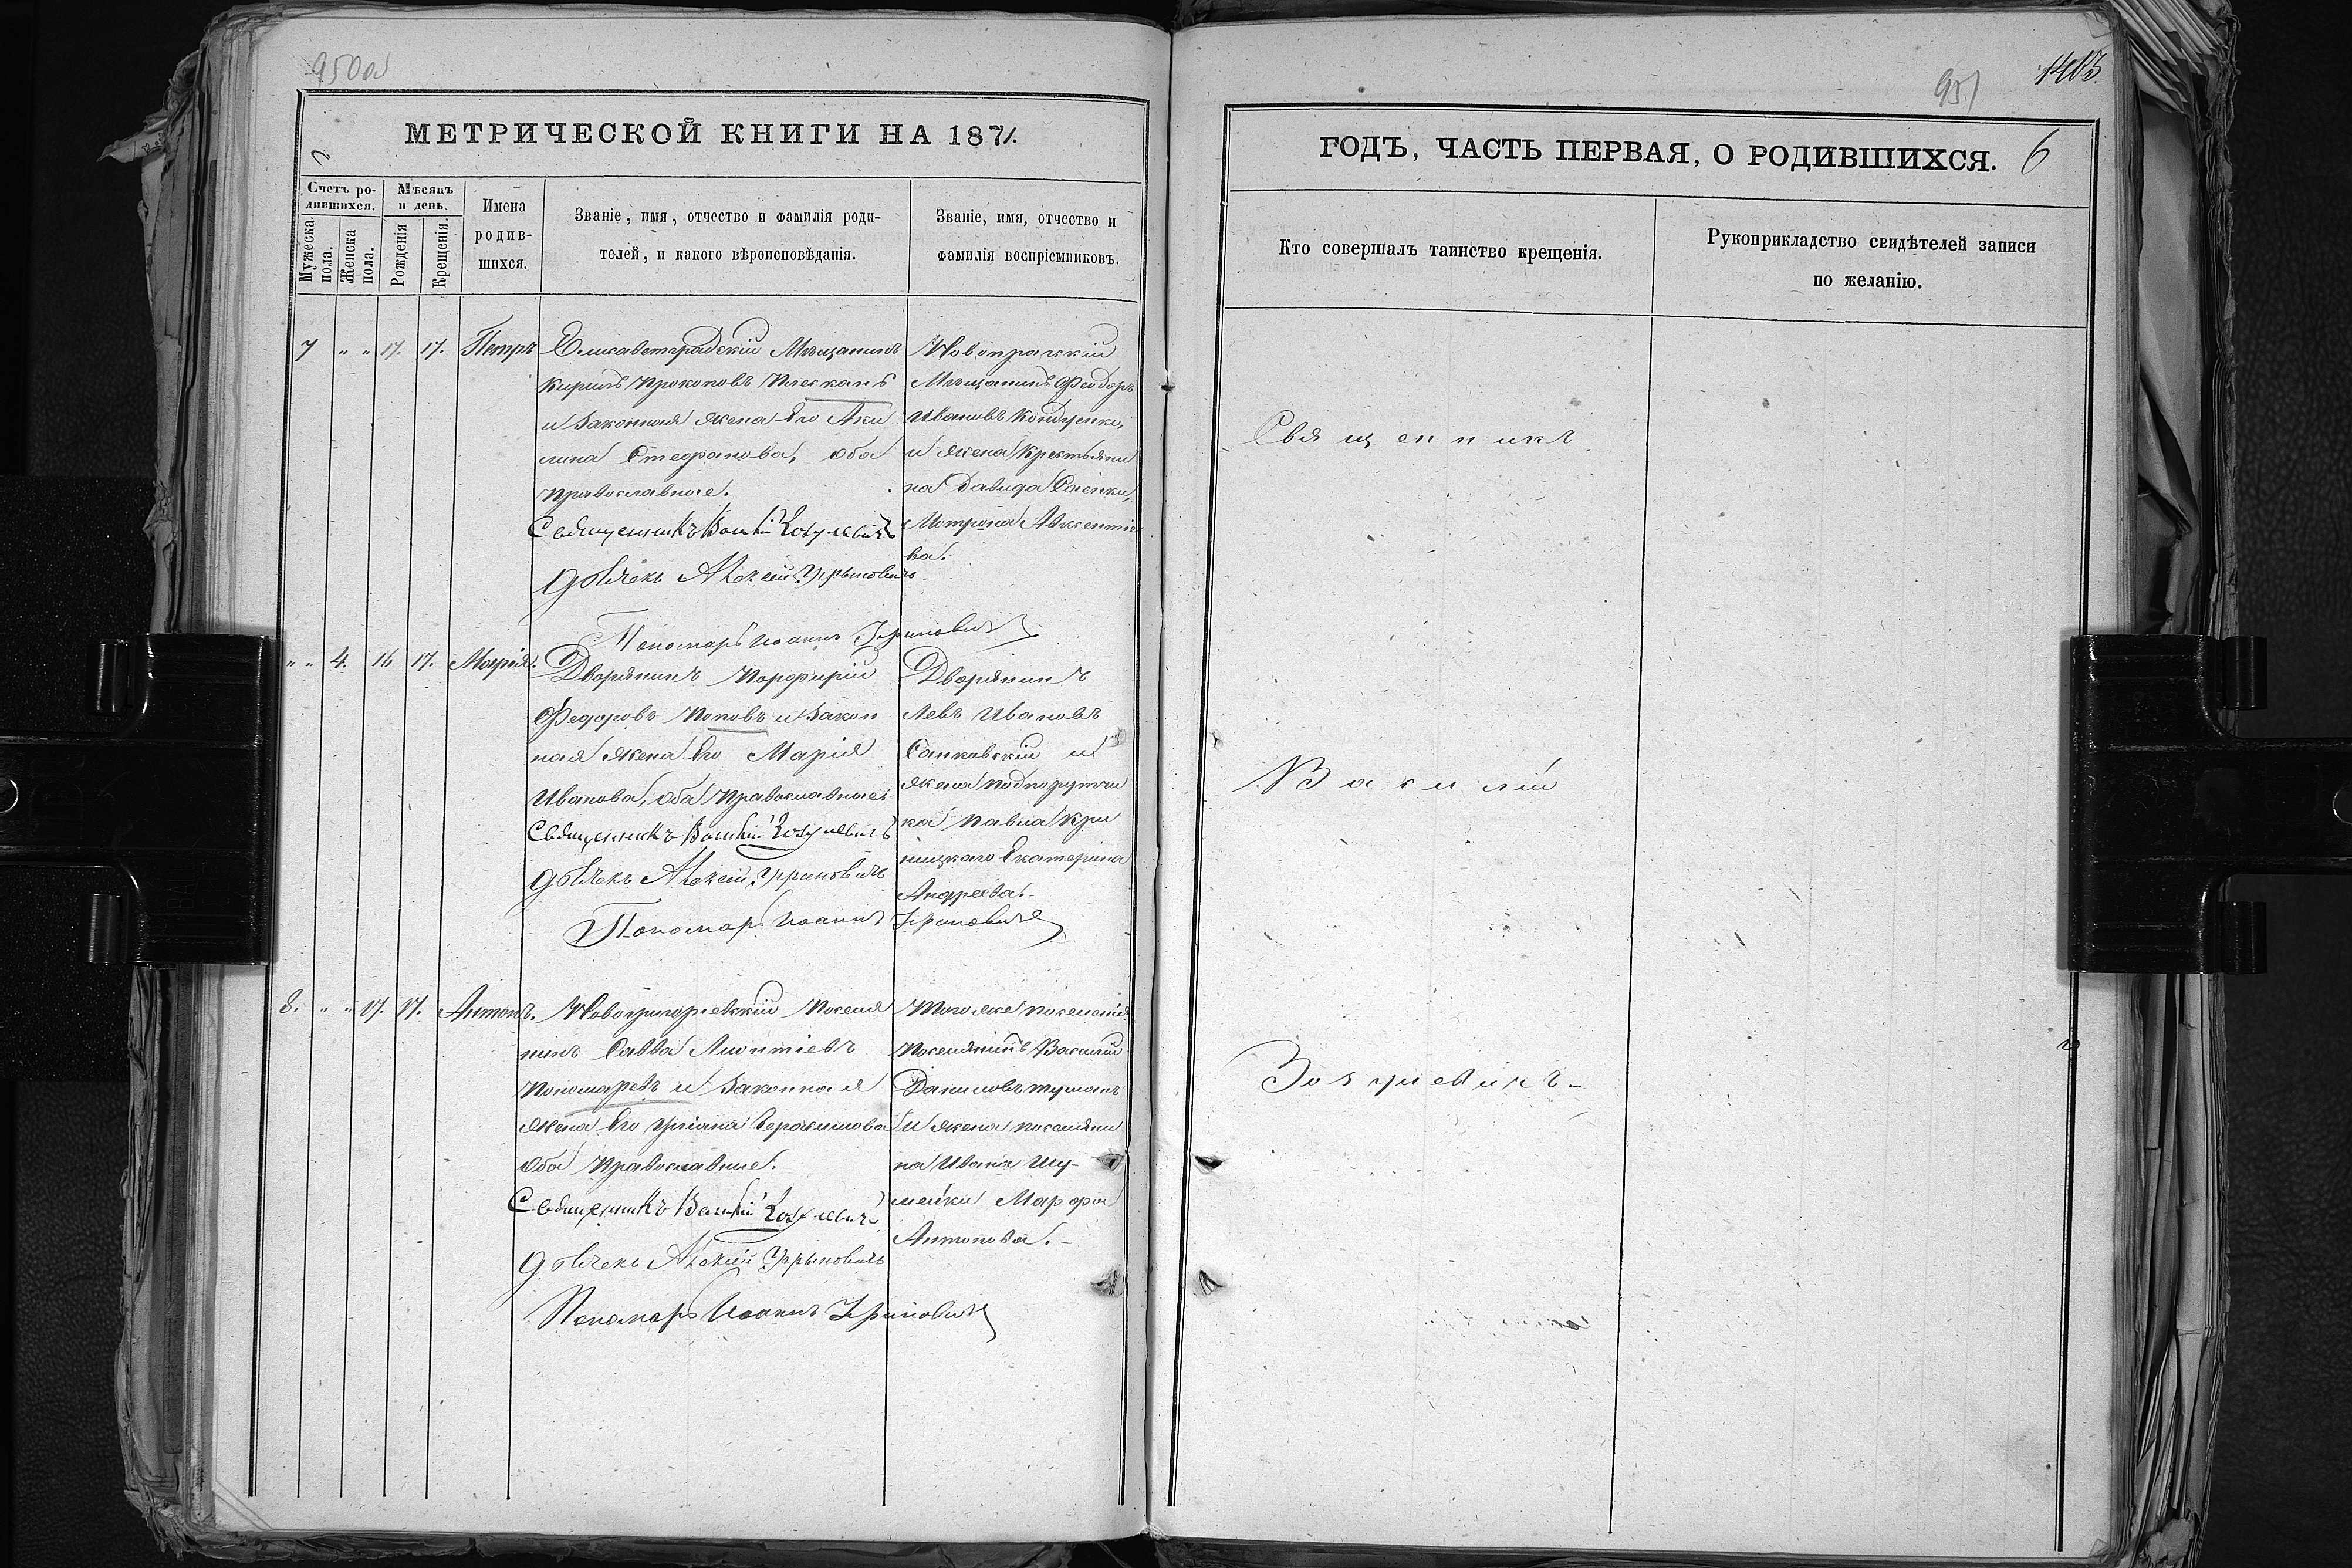 950об
МЕТРИЧЕСКОЙ КНИГИ НА 1871.
Счетъ ро-
дившихся.
Мѣсяцъ
и день.
Мужеска
пола.
Женска
пола.
Рожденія
Крещенія.
Имена
родив-
шихся.
Званіе, имя, отчество и фамилія роди-
телей, и какого вѣроисповѣданія.
Званіе, имя, отчество и
фамилія воспріемниковъ.
7 " " 17. 17. Петръ
Елисаветградскій Мѣщанинъ
Кирилъ Прокоповъ Плескань
и Законная жена Его Аки
лина Стефанова, оба
православные.
Священникъ Василій Зозулевичъ
Дьячекъ Алексій
Пономарь Иоаннъ
Новопражскій
Мѣщанинъ Феодоръ
Ивановъ Кондценко,
и жена Крестьяни
на Давида Саенки,
Мотрона Авксентіе
ва.
" " 4. 16 17. Марія.
Дворянинъ Порфирій
Федоровъ Поповъ и Закон
ная жена Его Марія
Иванова, оба Православные
Священникъ Василій Зозулевичъ
Дьячекъ Алексій
Пономарь Иоаннъ
Дворянинъ
Левъ Ивановъ
Санковскій и
жена подпоручи
ка Павла Кри
ницкаго Екатерина
Андреева.
8. " " 17. 17. Антонъ.
Новогригорьевскій Поселя
нинъ Савва Леонтіевъ
Пономаревъ и Законная
жена Его Уліана Герасимова
Оба Православные.
Священникъ Василій Зозулевичъ
Дьячекъ Алексій
Пономарь Иоаннъ
Того же поселенія
Поселянинъ Василій
Даниловъ Туманъ
и жена поселяни
на Ивана Шу-
лейки Марфа
Антонова.
951
1403.
ГОДЪ, ЧАСТЬ ПЕРВАЯ, О РОДИВШИХСЯ. 6
Кто совершалъ таинство крещенія.
Рукоприкладство свидѣтелей записи
по желанію.
Священникъ
Василій
Зозулевичъ